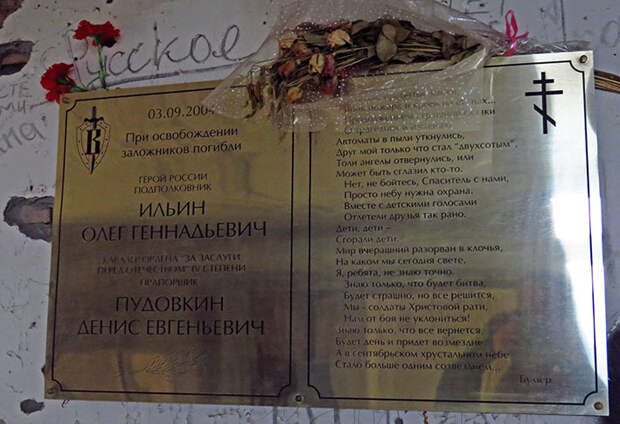 Русское
03.09.2004
При освобождении
заложников погибли
ГЕРОЙ РОССИИ
ПОДПОЛКОВНИК
ИЛЬИН
ОЛЕГ ГЕННАДЬЕВИЧ
КАВАЛЕР ОРДЕНА "ЗА ЗАСЛУГИ
ПЕРЕД ОТЕЧЕСТВОМ" IV СТЕПЕНИ
ПРАПОРЩИК
ПУДОВКИН
ДЕНИС ЕВГЕНЬЕВИЧ
Автоматы в пыли уткнулись,
Друг мой только что стал "двухсотым",
Толи ангелы отвернулись, или
Может быть сглазил кто-то.
Нет, не бойтесь, Спаситель с нами,
Просто небу нужна охрана.
Вместе с детскими голосами
Отлетели друзья так рано.
Дети, дети –
Сгорали дети.
Мир вчерашний разорван в клочья,
На каком мы сегодня свете,
Я, ребята, не знаю точно.
Знаю только, что будет битва,
Будет страшно, но все решится,
Мы - солдаты Христовой рати,
Нам от боя не уклониться!
Знаю только, что все вернется
Будет день и придет возмездие
А в сентябрьском хрустальном небе
Стало больше одним созвездием...